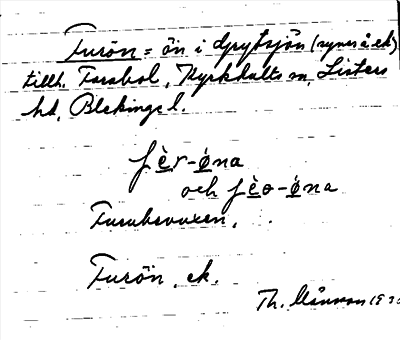 Furön = ön i Grytsjön (synes å ek)
tillh. Farabol, Kyrkhults sn, Listers
hd, Blekinge l.
fèr-øna
och fèo-øna
Furubevuxen,
Furön, ek.
Th.